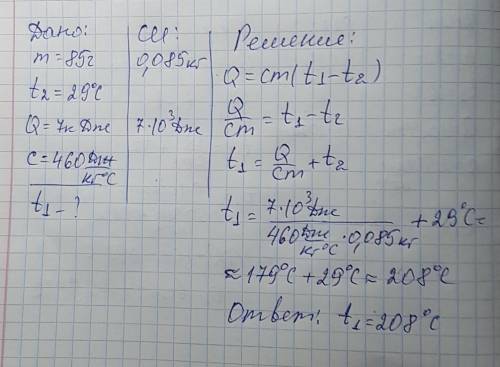 Дано:
m = 85г
t₂ = 29°C
Q = 7к Дж
c = 460 Дж/кг°C
t₁ - ?
СИ:
0,085кг
7·10³Дж
Решение:
Q = cm(t₁ - t₂)
Q/cm = t₁ - t₂
t₁ = Q/cm + t₂
t₁ = 7·10³Дж / 460 Дж/кг°C · 0,085кг + 29°C =
≈ 179°C + 29°C ≈ 208°C
Ответ: t₁ = 208°C